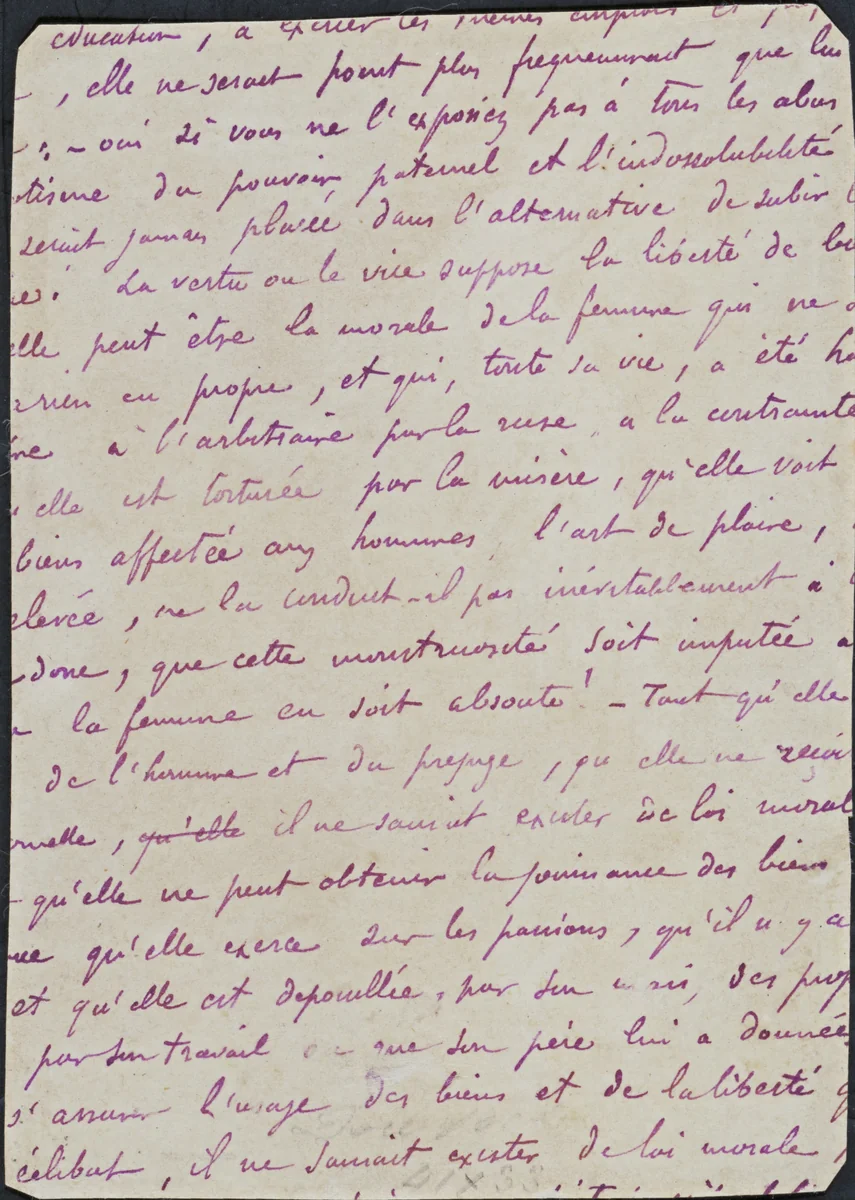 education, a exercer les mêmes emplois et
, elle ne serait point plus frequemment que lui
: - oui si vous ne l'exposiez pas à tous les abus
tisme du pouvoir paternel et l'indossolubilité
serait jamais placée dans l'alternative de subir l
ie! La vertu ou le vice suppose la liberté de
elle peut être la morale de la femme qui ne
rien en propre, et qui, toute sa vie, a été ha
re à l'arbitraire par la ruse, a la contrainte
elle est torturée par la misère, qu'elle voit
biens affectée aux hommes, l'art de plaire,
elevée, ne la conduit-il pas inévitablement à
donc, que cette monstruosité soit imputée a
la femme en soit absoute! - Tant qu'elle
de l'homme et du prejuge, qu elle ne reçoi
nnelle, qu'elle il ne saurait exister de loi moral
qu'elle ne peut obtenir la jouissance des biens
ue qu'elle exerce sur les passions, qu'il n y a
et qu'elle est depouillée, par son mari, des prop
par son travail ou que son père lui a données
s'assurer l'usage des biens et de la liberté q
célibat, il ne saurait exister de loi morale,